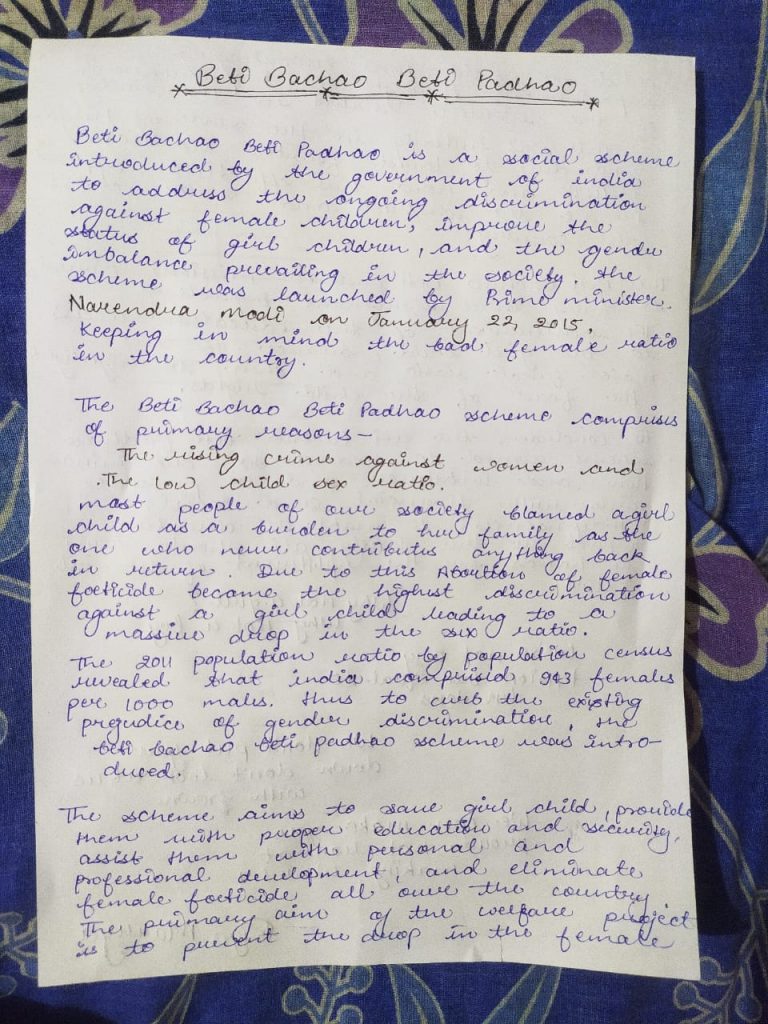 Beti Bachao Beti Padhao
Beti Bachao Beti Padhao is a social scheme
introduced by the government of india
to address the ongoing discrimination
against female children, improve the
status of girl children, and the gender
imbalance prevailing in the society. the
scheme was launched by Prime minister.
Narendra modi on January 22, 2015,
Keeping in mind the bad female ratio
in the country.
The Beti Bachao Beti Padhao scheme comprises
of primary reasons-
The rising crime against women and
.The low child sex ratio.
most people of our society blamed a girl
child as a burden to her family as the
one who never contributes anything back
in return. Due to this Abortion of female
foeticide became the highest discrimination
against a girl child leading to a
massive drop in the sex ratio.
The 2011 population ratio by population census
revealed that india comprised 943 females
per 1000 males. thus to curb the existing
prejudice of gender discrimination, the
beti bachao beti padhao scheme was intro-
duced.
The scheme aims to save girl child, provide
them with proper education and security,
assist them with personal and
professional development and eliminate
female foeticide all over the country
The primary aim of the welfare project
is to prevent the drop in the female